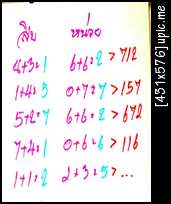 สิบ หน่วย
4+3=1 6+6=2 > 712
1+4=5 0+7=7 > 157
5+2=7 6+6=2 > 672
7+4=1 0+6=6 > 116
1+1=2 2+3=5 > ...
[431x576] upic.me